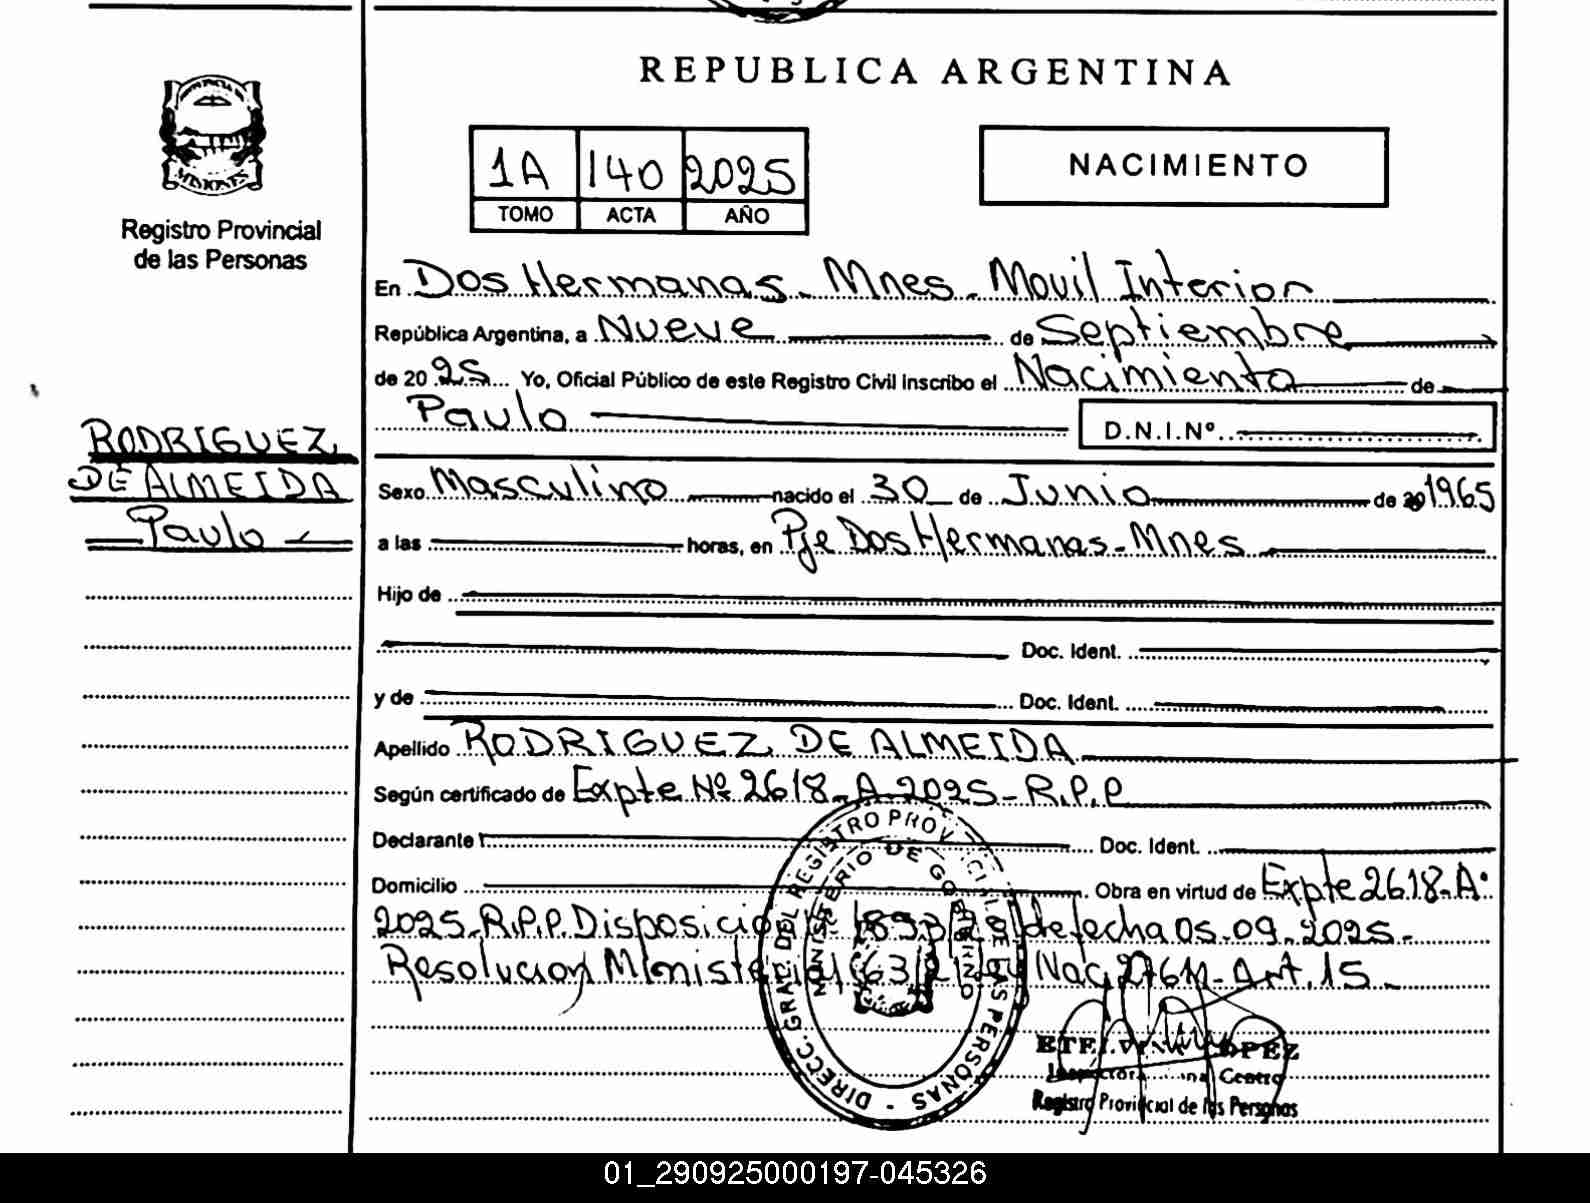 REPUBLICA ARGENTINA
MISIONES
Registro Provincial
de las Personas
1A 140 2025
TOMO ACTA AÑO
NACIMIENTO
En Dos Hermanas - Mnes - Movil Interior
República Argentina, a Nueve de Septiembre
de 2025 Yo, Oficial Público de este Registro Civil Inscribo el Nacimiento de
Paulo D.N.I.Nº
RODRIGUEZ
DE ALMEIDA
Paulo
Sexo Masculino nacido el 30 de Junio de 20 1965
a las horas, en Pje Dos Hermanas - Mnes
Hijo de
Doc. Ident.
y de Doc. Ident.
Apellido RODRIGUEZ DE ALMEIDA
Según certificado de Expte Nº 2618-A-2025-R.P.P
Declarante Doc. Ident.
Domicilio Obra en virtud de Expte 2618-A-
2025-R.P.P. Disposición de fecha 05-09-2025-
Resolucion Ministerial Nac Art. 15-
DIRECC. GRAL. DEL REGISTRO PROVINCIAL DE LAS PERSONAS
MINISTERIO DE GOBIERNO
LOPEZ
Inspectora Centro
Registro Provincial de las Personas
01_290925000197-045326